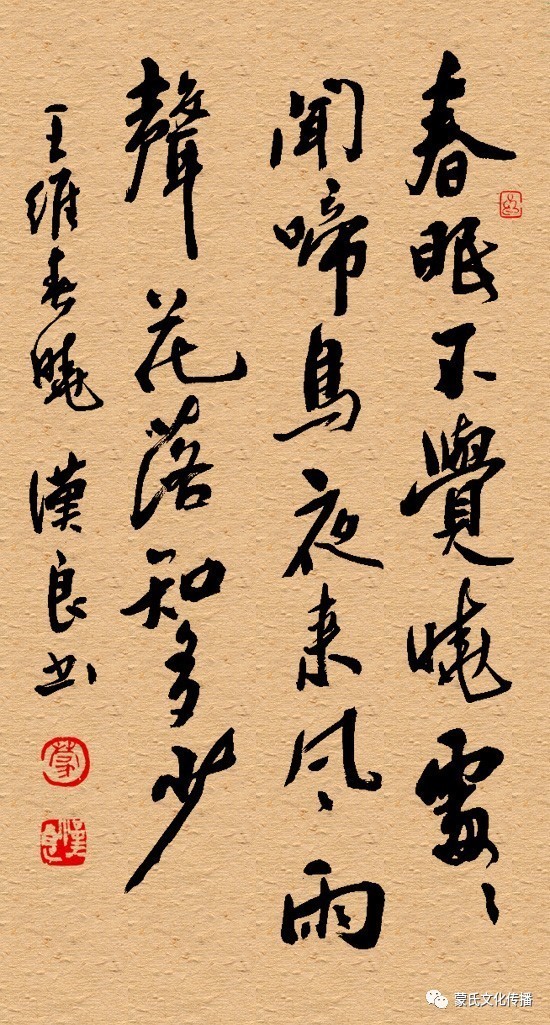 春眠不覺曉處〻
聞啼鳥夜來風雨
聲花落知多少
王維春曉 漢良书
蒙
漢良
蒙氏文化传播